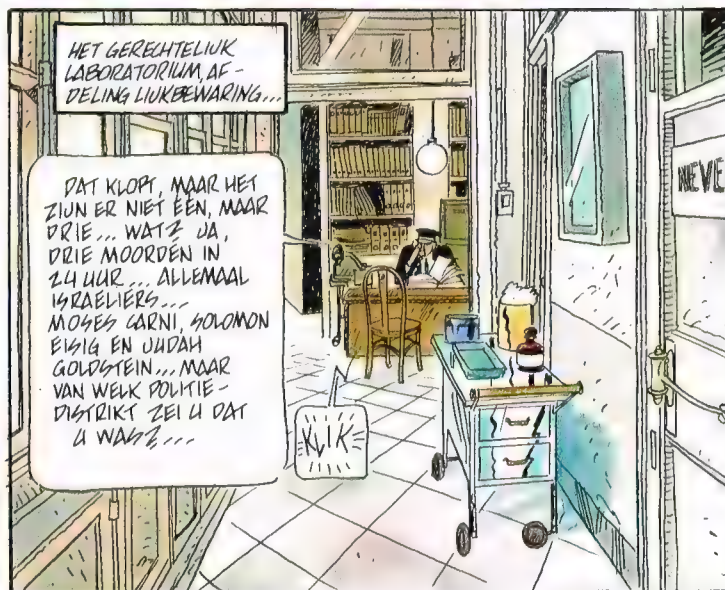 HET GERECHTELIJK
LABORATORIUM, AF-
DELING LIJKBEWARING...
DAT KLOPT, MAAR HET
ZIJN ER NIET EEN, MAAR
DRIE... WAT? JA,
DRIE MOORDEN IN
24 UUR... ALLEMAAL
ISRAËLIËRS...
MOSES CARNI, SOLOMON
EISIG EN JUDAH
GOLDSTEIN... MAAR
VAN WELK POLITIE-
DISTRIKT ZEI U DAT
U WAS?...
KLIK
NEVE